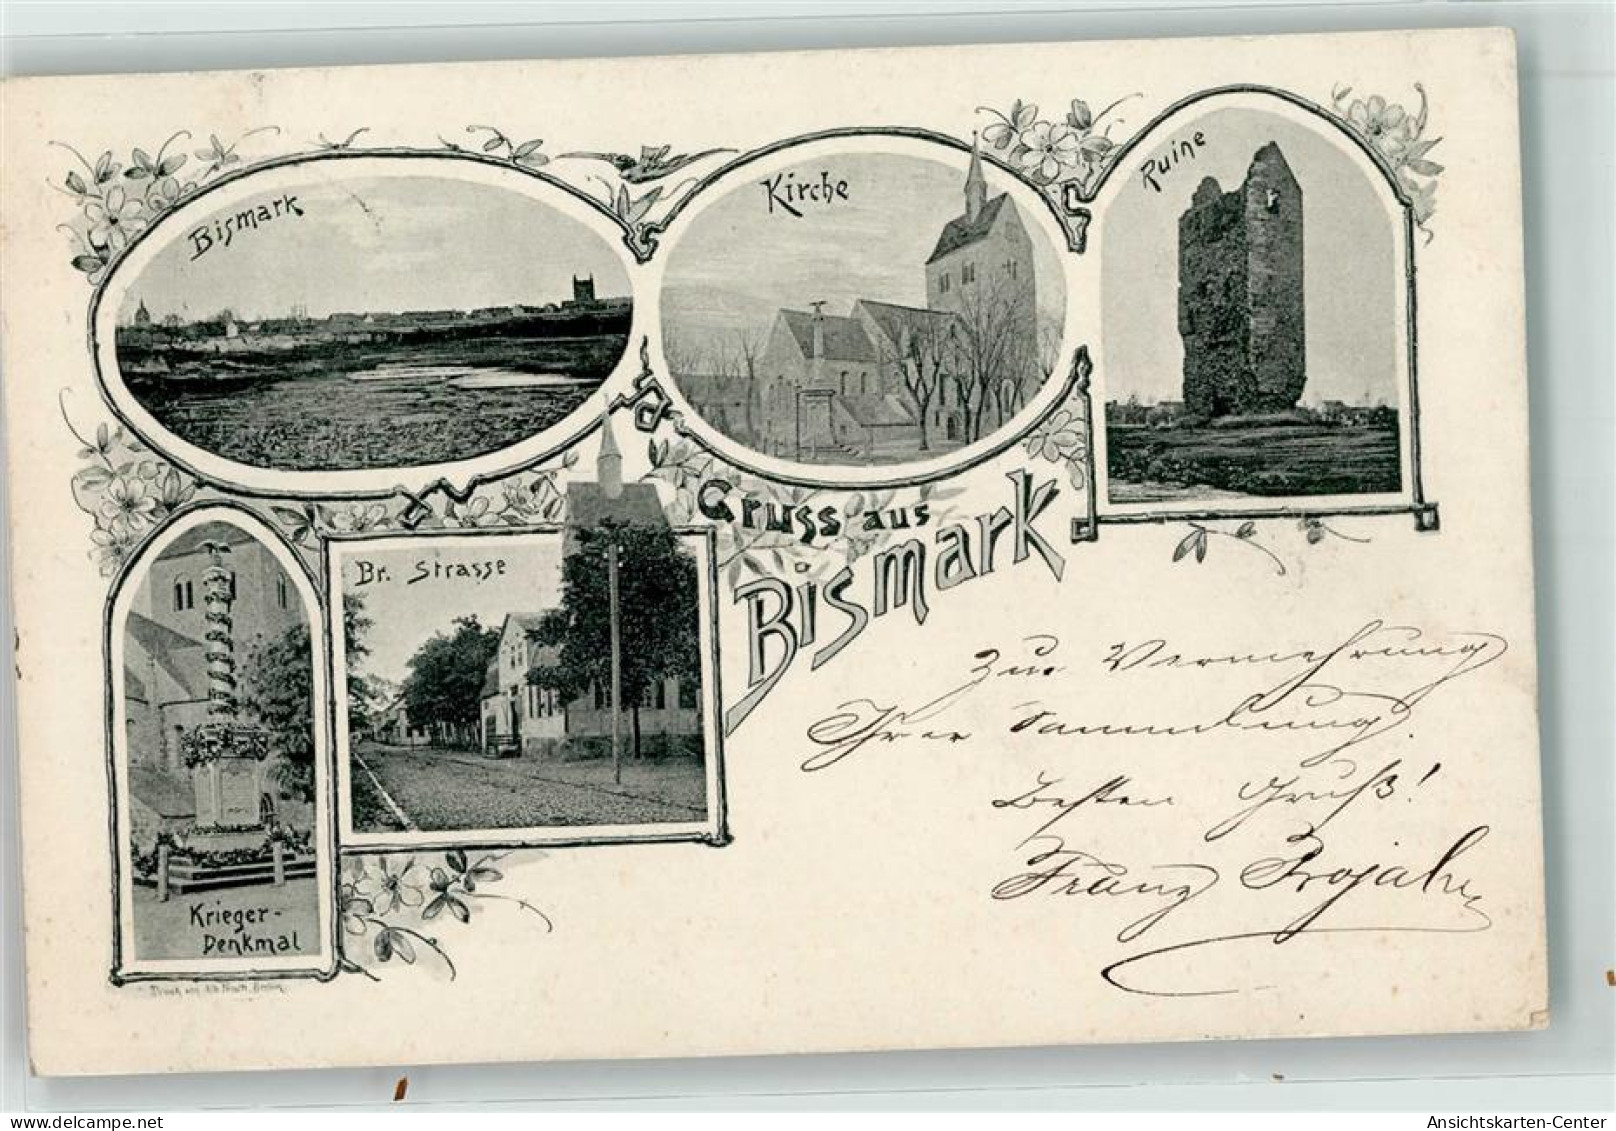 Bismark
Kirche
Ruine
Gruss aus
Bismark
Br. Strasse
Krieger-
Denkmal
Zur Vermehrung
Ihrer Sammlung.
Besten Gruß!
Franz
Ansichtskarten-Center